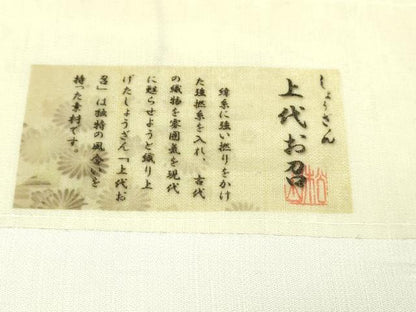 しょうざん
上代お召
緯糸に強い撚りをかけ
た強撚糸を入れ、古代
の織物を雰囲気を現代
に甦らせようと織り上
げたしょうざん「上代お
召」は独特の風合いを
持った素材です。